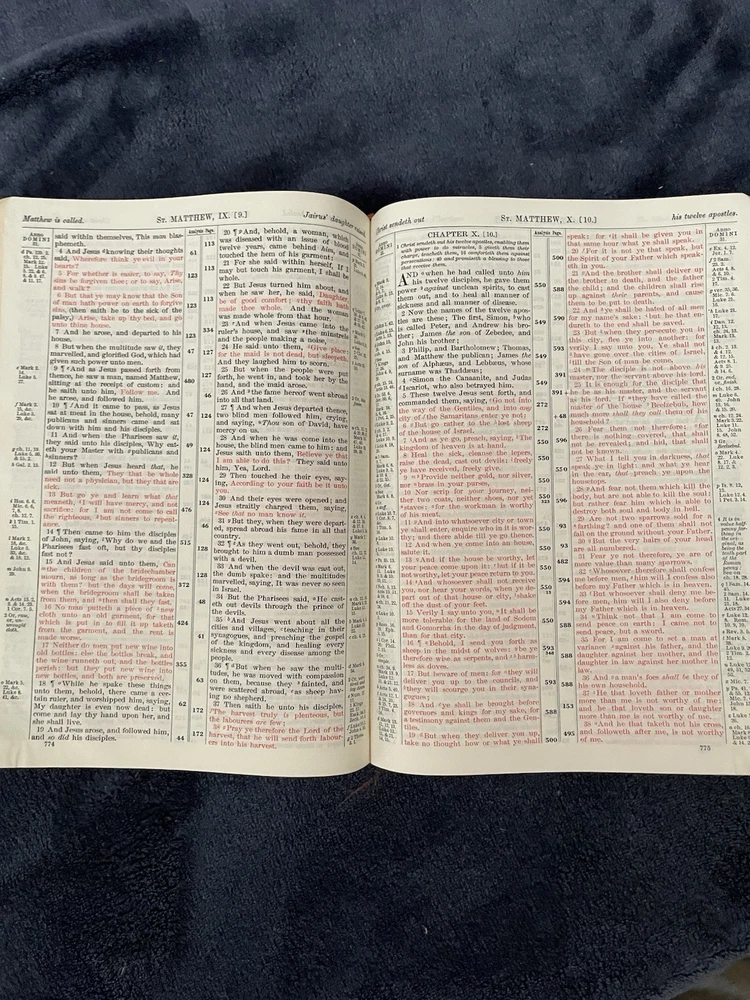 Matthew is called.
St. MATTHEW, IX. [9.]
Jairus' daughter raised.
said within themselves, This man blas-
phemeth.
4 And Jesus knowing their thoughts
said, Wherefore think ye evil in your
hearts?
5 For whether is easier, to say, Thy
sins be forgiven thee; or to say, Arise,
and walk?
6 But that ye may know that the Son
of man hath power on earth to forgive
sins, (then saith he to the sick of the
palsy,) Arise, take up thy bed, and go
unto thine house.
7 And he arose, and departed to his
house.
8 But when the multitude saw it, they
marvelled, and glorified God, which had
given such power unto men.
9 ¶ And as Jesus passed forth from
thence, he saw a man, named Matthew,
sitting at the receipt of custom: and
he saith unto him, Follow me. And
he arose, and followed him.
10 ¶ And it came to pass, as Jesus
sat at meat in the house, behold, many
publicans and sinners came and sat
down with him and his disciples.
11 And when the Pharisees saw it,
they said unto his disciples, Why
eateth your Master with publicans and
sinners?
12 But when Jesus heard that, he
said unto them, They that be whole
need not a physician, but they that are
sick.
13 But go ye and learn what that
meaneth, I will have mercy, and not
sacrifice: for I am not come to call
the righteous, but sinners to repent-
ance.
14 ¶ Then came to him the disciples
of John, saying, Why do we and the
Pharisees fast oft, but thy disciples
fast not?
15 And Jesus said unto them, Can
the children of the bridechamber
mourn, as long as the bridegroom is
with them? but the days will come,
when the bridegroom shall be taken
from them, and then shall they fast.
16 No man putteth a piece of new
cloth unto an old garment, for that
which is put in to fill it up taketh
from the garment, and the rent is
made worse.
17 Neither do men put new wine into
old bottles: else the bottles break, and
the wine runneth out, and the bottles
perish: but they put new wine into
new bottles, and both are preserved.
18 ¶ While he spake these things
unto them, behold, there came a cer-
tain ruler, and worshipped him, saying,
My daughter is even now dead: but
come and lay thy hand upon her, and
she shall live.
19 And Jesus arose, and followed him,
and so did his disciples.
774
20 ¶ And, behold, a woman, which
was diseased with an issue of blood
twelve years, came behind him, and
touched the hem of his garment:
21 For she said within herself, If I
may but touch his garment, I shall be
whole.
22 But Jesus turned him about, and
when he saw her, he said, Daughter,
be of good comfort; thy faith hath
made thee whole. And the woman
was made whole from that hour.
23 And when Jesus came into the
ruler's house, and saw the minstrels
and the people making a noise,
24 He said unto them, Give place:
for the maid is not dead, but sleepeth.
And they laughed him to scorn.
25 But when the people were put
forth, he went in, and took her by the
hand, and the maid arose.
26 And the fame hereof went abroad
into all that land.
27 ¶ And when Jesus departed thence,
two blind men followed him, crying,
and saying, Thou son of David, have
mercy on us.
28 And when he was come into the
house, the blind men came to him: and
Jesus saith unto them, Believe ye that
I am able to do this? They said unto
him, Yea, Lord.
29 Then touched he their eyes, say-
ing, According to your faith be it unto
you.
30 And their eyes were opened; and
Jesus straitly charged them, saying,
See that no man know it.
31 But they, when they were depart-
ed, spread abroad his fame in all that
country.
32 ¶ As they went out, behold, they
brought to him a dumb man possessed
with a devil.
33 And when the devil was cast out,
the dumb spake: and the multitudes
marvelled, saying, It was never so seen
in Israel.
34 But the Pharisees said, He cast-
eth out devils through the prince of
the devils.
35 And Jesus went about all the
cities and villages, teaching in their
synagogues, and preaching the gospel
of the kingdom, and healing every
sickness and every disease among the
people.
36 ¶ But when he saw the multi-
tudes, he was moved with compassion
on them, because they fainted, and
were scattered abroad, as sheep hav-
ing no shepherd.
37 Then saith he unto his disciples,
The harvest truly is plenteous, but
the labourers are few;
38 Pray ye therefore the Lord of the
harvest, that he will send forth labour-
ers into his harvest.
Christ sendeth out
St. MATTHEW, X. [10.]
his twelve apostles.
CHAPTER X. [10.]
1 Christ sendeth out his twelve apostles, enabling them
with power to do miracles, 5 giveth them their
charge, teacheth them, 16 comforteth them against
persecutions: 40 and promiseth a blessing to those
that receive them.
AND when he had called unto him
his twelve disciples, he gave them
power against unclean spirits, to cast
them out, and to heal all manner of
sickness and all manner of disease.
2 Now the names of the twelve apos-
tles are these; The first, Simon, who
is called Peter, and Andrew his bro-
ther; James the son of Zebedee, and
John his brother;
3 Philip, and Bartholomew; Thomas,
and Matthew the publican; James the
son of Alphæus, and Lebbæus, whose
surname was Thaddæus;
4 Simon the Canaanite, and Judas
Iscariot, who also betrayed him.
5 These twelve Jesus sent forth, and
commanded them, saying, Go not into
the way of the Gentiles, and into any
city of the Samaritans enter ye not:
6 But go rather to the lost sheep
of the house of Israel.
7 And as ye go, preach, saying, The
kingdom of heaven is at hand.
8 Heal the sick, cleanse the lepers,
raise the dead, cast out devils: freely
ye have received, freely give.
9 Provide neither gold, nor silver,
nor brass in your purses,
10 Nor scrip for your journey, nei-
ther two coats, neither shoes, nor yet
staves: for the workman is worthy
of his meat.
11 And into whatsoever city or town
ye shall enter, enquire who in it is wor-
thy; and there abide till ye go thence.
12 And when ye come into an house,
salute it.
13 And if the house be worthy, let
your peace come upon it: but if it be
not worthy, let your peace return to you.
14 And whosoever shall not receive
you, nor hear your words, when ye de-
part out of that house or city, shake
off the dust of your feet.
15 Verily I say unto you, It shall be
more tolerable for the land of Sodom
and Gomorrha in the day of judgment,
than for that city.
16 ¶ Behold, I send you forth as
sheep in the midst of wolves: be ye
therefore wise as serpents, and harm-
less as doves.
17 But beware of men: for they will
deliver you up to the councils, and
they will scourge you in their syna-
gogues;
18 And ye shall be brought before
governors and kings for my sake, for
a testimony against them and the Gen-
tiles.
19 But when they deliver you up,
take no thought how or what ye shall
speak: for it shall be given you in
that same hour what ye shall speak.
20 For it is not ye that speak, but
the Spirit of your Father which speak-
eth in you.
21 And the brother shall deliver up
the brother to death, and the father
the child: and the children shall rise
up against their parents, and cause
them to be put to death.
22 And ye shall be hated of all men
for my name's sake: but he that en-
dureth to the end shall be saved.
23 But when they persecute you in
this city, flee ye into another: for
verily I say unto you, Ye shall not
have gone over the cities of Israel,
till the Son of man be come.
24 The disciple is not above his
master, nor the servant above his lord.
25 It is enough for the disciple that
he be as his master, and the servant
as his lord. If they have called the
master of the house Beelzebub, how
much more shall they call them of his
household?
26 Fear them not therefore: for
there is nothing covered, that shall
not be revealed; and hid, that shall
not be known.
27 What I tell you in darkness, that
speak ye in light: and what ye hear
in the ear, that preach ye upon the
housetops.
28 And fear not them which kill the
body, but are not able to kill the soul:
but rather fear him which is able to
destroy both soul and body in hell.
29 Are not two sparrows sold for a
farthing? and one of them shall not
fall on the ground without your Father.
30 But the very hairs of your head
are all numbered.
31 Fear ye not therefore, ye are of
more value than many sparrows.
32 Whosoever therefore shall confess
me before men, him will I confess also
before my Father which is in heaven.
33 But whosoever shall deny me be-
fore men, him will I also deny before
my Father which is in heaven.
34 Think not that I am come to
send peace on earth: I came not to
send peace, but a sword.
35 For I am come to set a man at
variance against his father, and the
daughter against her mother, and the
daughter in law against her mother in
law.
36 And a man's foes shall be they of
his own household.
37 He that loveth father or mother
more than me is not worthy of me:
and he that loveth son or daughter
more than me is not worthy of me.
38 And he that taketh not his cross,
and followeth after me, is not worthy
of me.
775